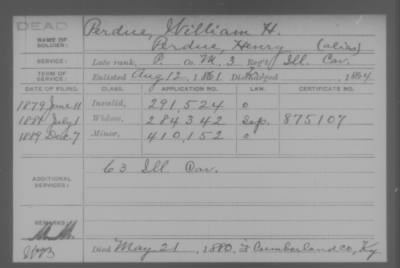 DEAD
NAME OF SOLDIER: Perdue, William H.
Perdue, Henry (alias)
SERVICE: Late rank, P. Co. M. 3 Reg't Ill. Cav.
TERM OF SERVICE: Enlisted Aug 12, 1861 Discharged, 1864
DATE OF FILING. CLASS. APPLICATION NO. LAW. CERTIFICATE NO.
1879 June 11 Invalid, 291,524 o
July 1 Widow, 284342 875107
1889 Dec. 7 Minor, 410,152 o
ADDITIONAL SERVICES: C 3 Ill. Cav.
REMARKS:
Died May 21, 1880, Cumberland Co, Ky.